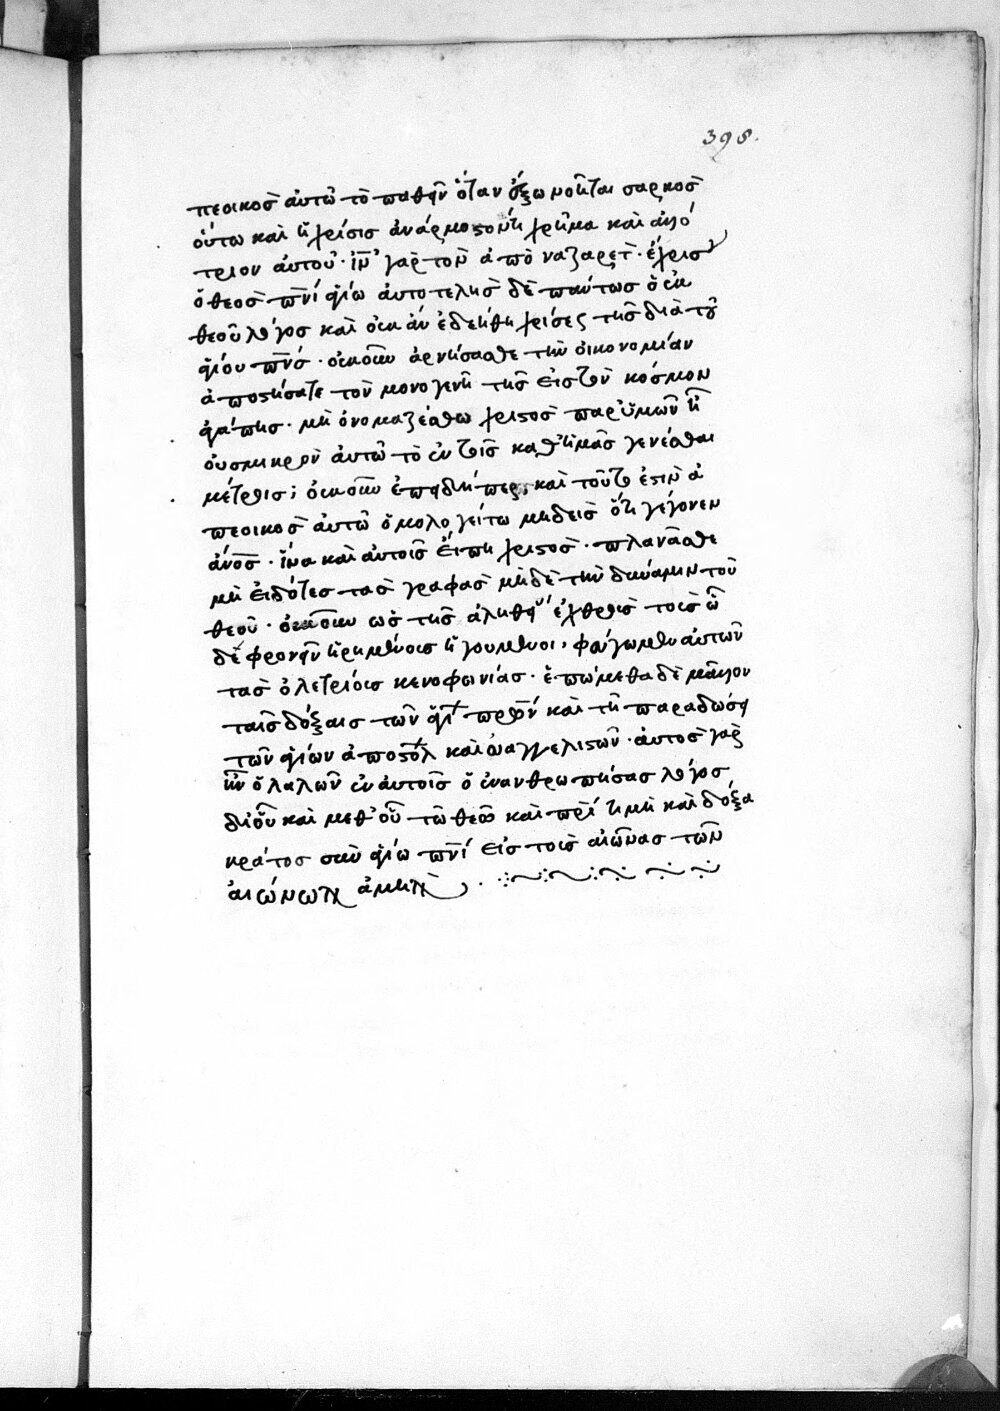 398.
πεοικοσ αὐτῶ τὸ παθεῖν ὅταν ἔξω νοῆται σαρκοσ
οὕτω καὶ ἡ χρίσισ ἀνάρμοστόν τι χρῆμα καὶ ἀλλό
τριον αὐτοῦ· ἰν γὰρ τον ἀπὸ ναζαρετ· ἔχρισεν
ὁ θεοσ πνι ἁγίω αὐτοτελησ δὲ πάντωσ ὁ ἐκ
θεοῦ λόγοσ καὶ οὐκ ἂν ἐδεήθη χρίσεως τῆσ διὰ τοῦ
ἁγίου πνσ· οὐκοῦν ἀρνήσασθε τὴν οἰκονομίαν
ἀποστήσατε τὸν μονογενῆ τῆσ εἰς τὸν κόσμον
ἀγάπησ· μὴ ὀνομαζέσθω χριστοσ παρ' ὑμῶν ἢ
οὐ σμικρὸν αὐτῶ τὸ ἐν τοῖσ καθ' ἡμᾶσ γενέσθαι
μέτροισ; οὐκοῦν ἐπειδήπερ καὶ τοῦτο ἐστὶν ἀ
πεοικοσ αὐτῶ ὁμολογείτω μηδεισ ὅτι γέγονεν
ανοσ· ἵνα καὶ αὐτοῖσ εἴπη χριστοσ· πλανᾶσθε
μὴ εἰδότεσ τασ γραφασ μηδὲ τὴν δύναμιν τοῦ
θεοῦ· οὐκοῦν ὡσ τῆσ ἀληθεί ἐχθροὺσ τοὺσ ὧ
δε φρονεῖν ἡρημένουσ ἡγούμενοι, φεύγωμεν αὐτῶν
τασ ὀλεθρίουσ κενοφωνίασ· ἑπώμεθα δὲ μᾶλλον
ταῖσ δόξαισ τῶν ἁγί πρων καὶ τῆ παραδώσει
τῶν ἁγίων ἀποστόλ καὶ εὐαγγελιστῶν· αὐτοσ γαρ
ἦν ὁ λαλῶν ἐν αὐτοῖσ ὁ ἐνανθρωπήσασ λόγοσ
δι' οὗ καὶ μεθ' οὗ τῶ θεῶ καὶ πρι τιμὴ καὶ δόξα
κράτοσ σὺν ἁγίω πνι εἰσ τοὺσ αἰῶνασ τῶν
αἰώνων ἀμήν